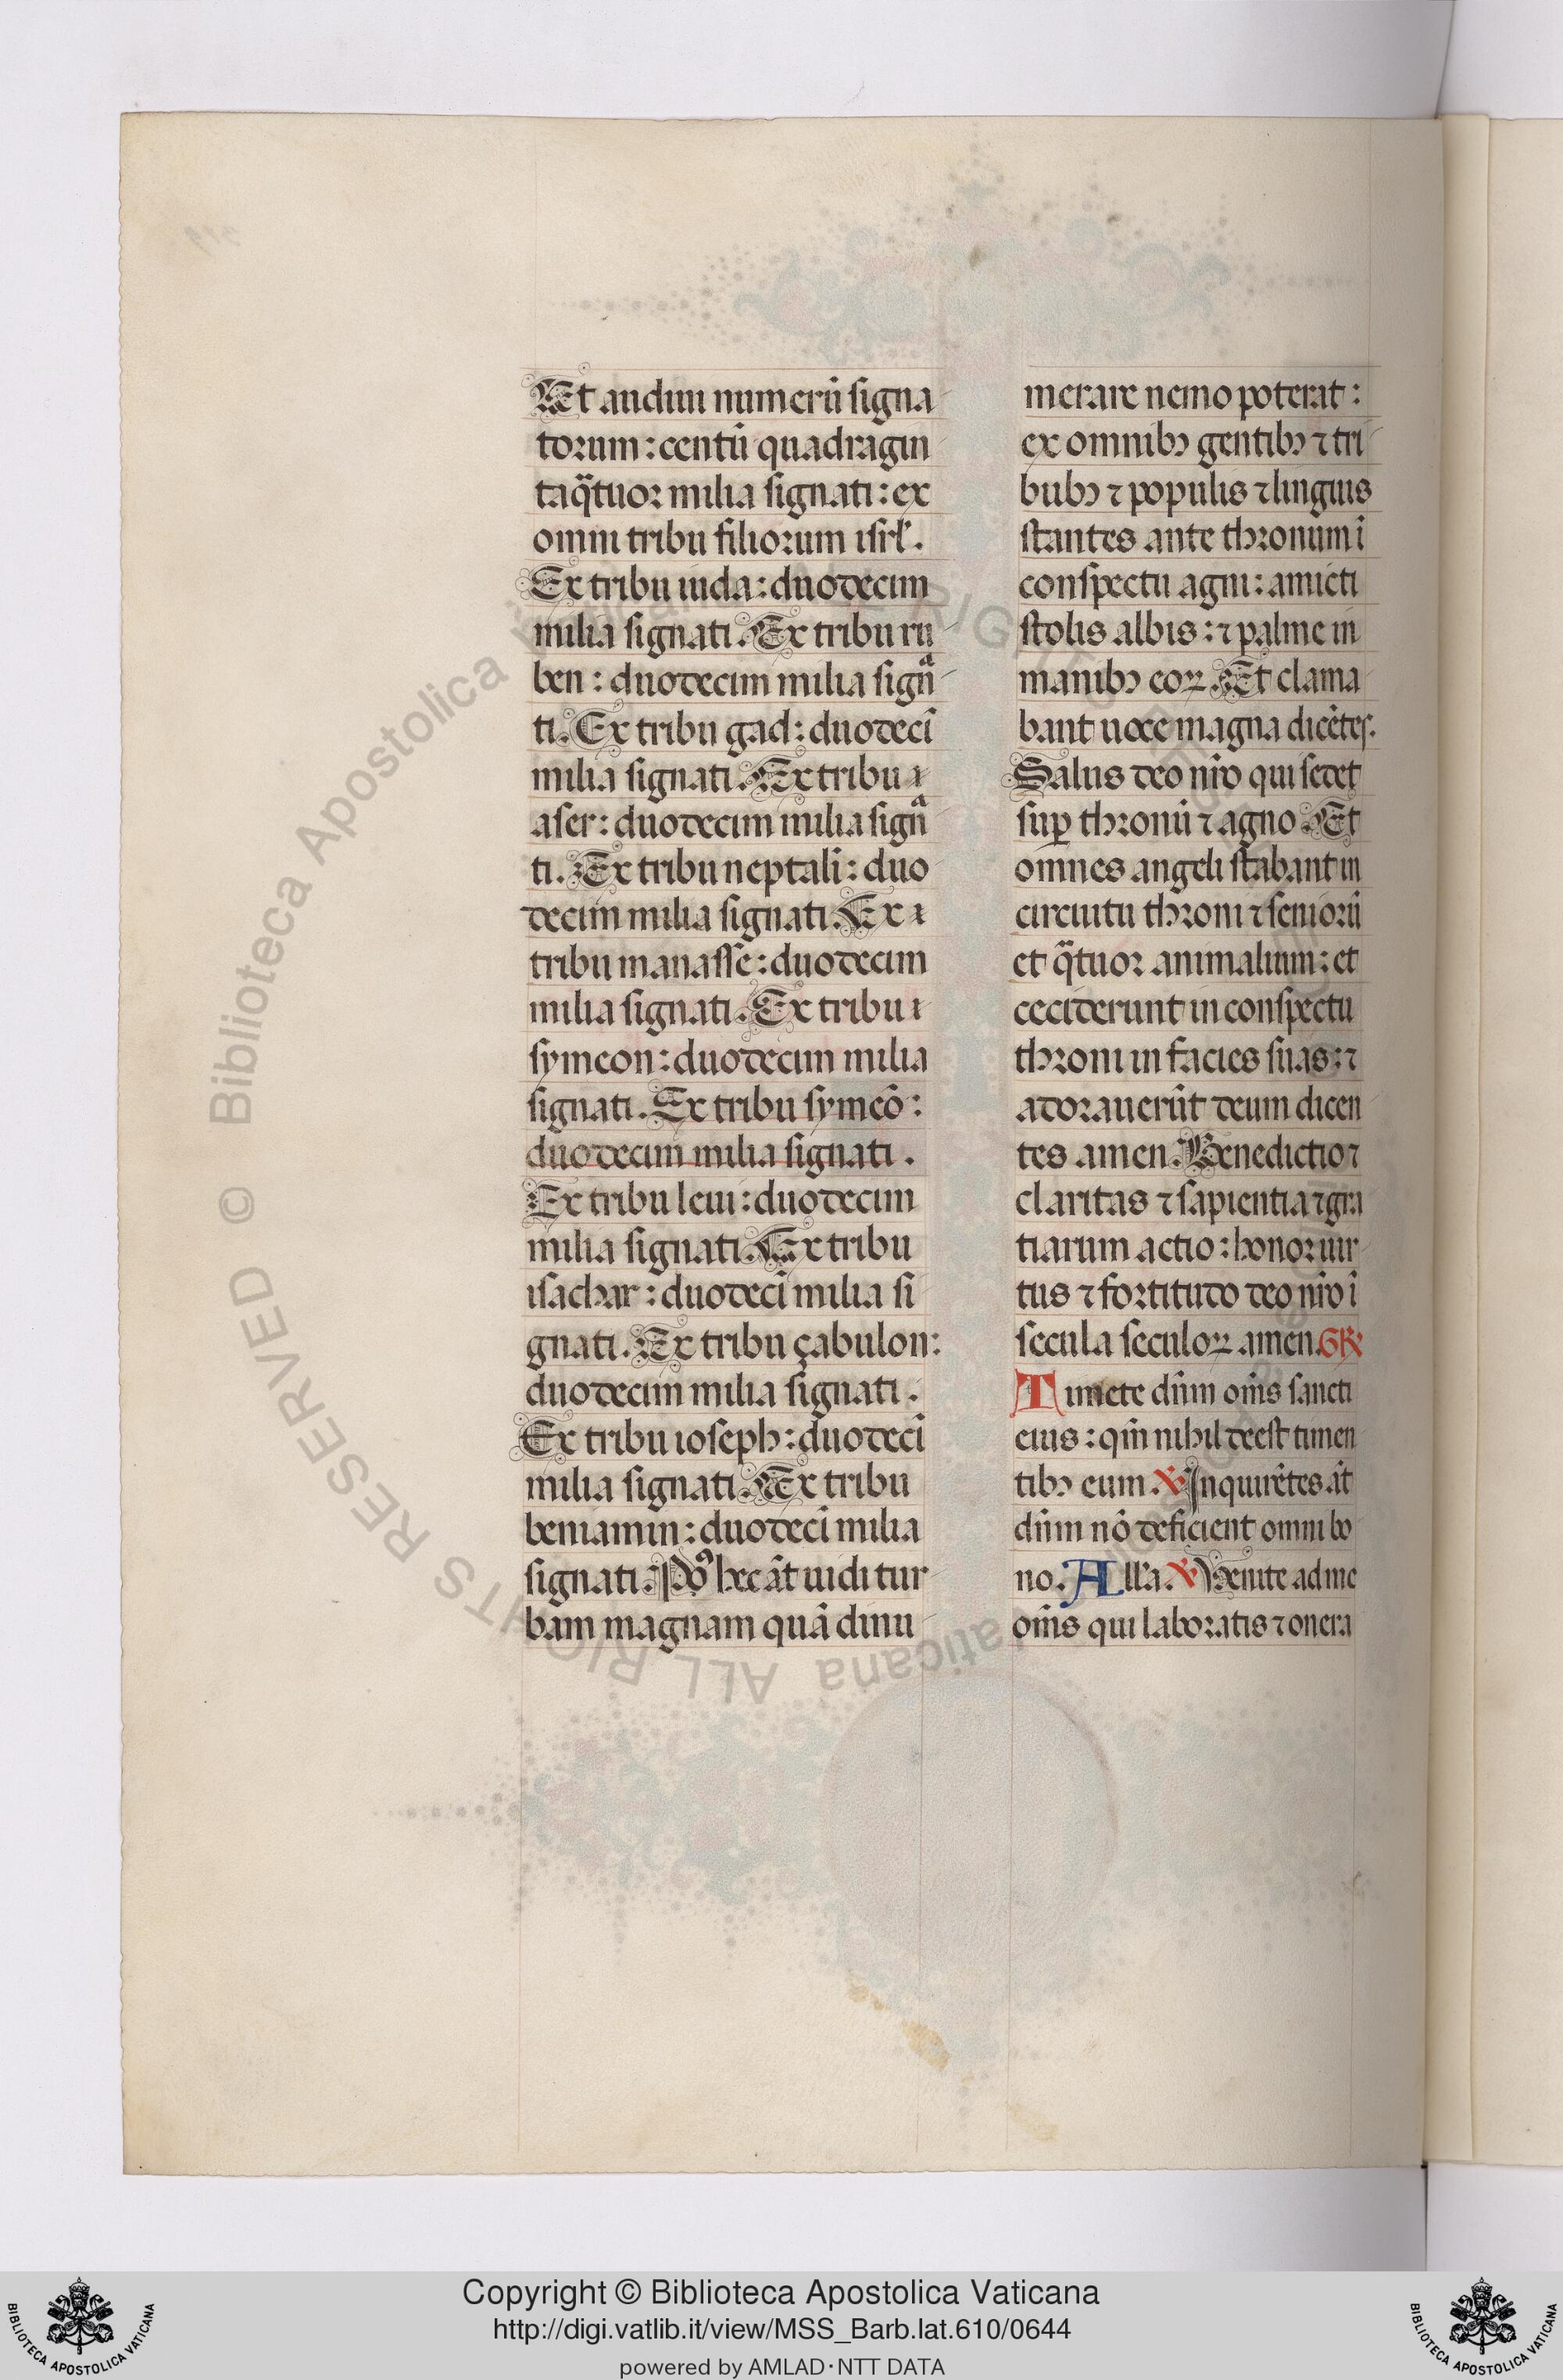 Et audiui numerū signa
torum: centū quadragin
taq̃tuor milia signati: ex
omni tribu filiorum isrl̃.
Ex tribu iuda: duodecim
milia signati. Ex tribu ru
ben: duodecim milia signᵃ
ti. Ex tribu gad: duodecī
milia signati. Ex tribu
aser: duodecim milia signᵃ
ti. Ex tribu neptali: duo
decim milia signati. Ex
tribu manasse: duodecim
milia signati. Ex tribu
symeon: duodecim milia
signati. Ex tribu symeō:
duodecim milia signati.
Ex tribu leui: duodecim
milia signati. Ex tribu
isachar: duodecī milia si
gnati. Ex tribu çabulon:
duodecim milia signati.
Ex tribu ioseph: duodecī
milia signati. Ex tribu
beniamin: duodecī milia
signati. Poꝰ hec āt uidi tur
bam magnam quā dinu
merare nemo poterat:
ex omnibꝫ gentibꝫ ⁊ tri
bubꝫ ⁊ populis ⁊ linguis
stantes ante thronum ī
conspectu agni: amicti
stolis albis: ⁊ palme in
manibꝫ eoꝝ. Et clama
bant uoce magna dicētes.
Salus deo nr̄o qui sedet
suꝑ thronū ⁊ agno. Et
omnes angeli stabant in
circuitu throni ⁊ seniorū
et q̃tuor animalium: et
ceciderunt in conspectu
throni in facies suas: ⁊
adorauerūt deum dicen
tes amen. Benedictio ⁊
claritas ⁊ sapientia ⁊ gra
tiarum actio: honor uir
tus ⁊ fortitudo deo nr̄o ī
secula seculoꝝ amen. GR̄
Timete dn̄m om̄s sancti
eius: qm̄ nihil deest timen
tibꝫ eum. ℣ Inquirētes āt
dn̄m nō deficient omni bo
no. All'a. ℣ Uenite ad me
om̄s qui laboratis ⁊ onera
© Biblioteca Apostolica Vaticana ALL RIGHTS RESERVED
Copyright © Biblioteca Apostolica Vaticana
http://digi.vatlib.it/view/MSS_Barb.lat.610/0644
powered by AMLAD·NTT DATA
BIBLIOTECA APOSTOLICA VATICANA
BIBLIOTECA APOSTOLICA VATICANA